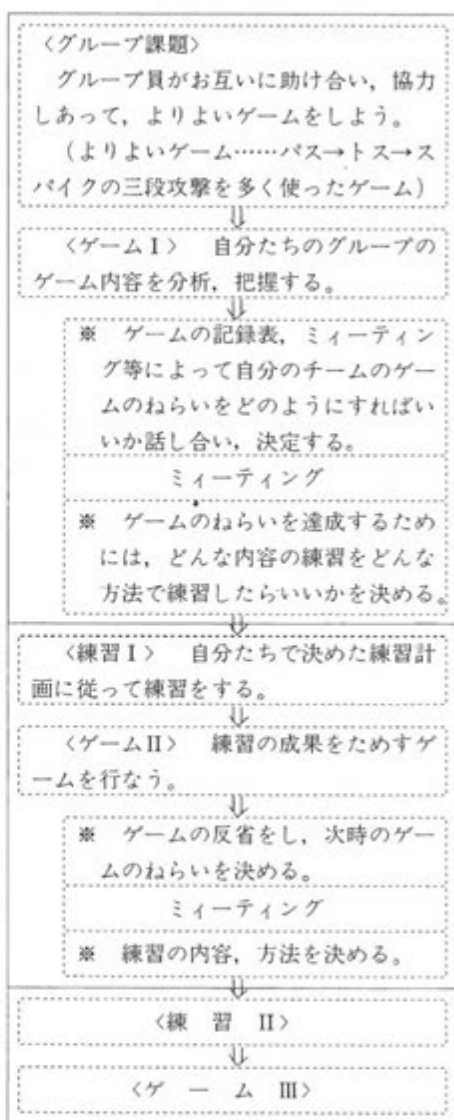 〈グループ課題〉
グループ員がお互いに助け合い，協力
しあって，よりよいゲームをしよう。
（よりよいゲーム……パス→トス→ス
パイクの三段攻撃を多く使ったゲーム）
⇓
〈ゲームⅠ〉 自分たちのグループの
ゲーム内容を分析，把握する。
⇓
※ ゲームの記録表，ミィーティン
グ等によって自分のチームのゲー
ムのねらいをどのようにすればい
いか話し合い，決定する。
ミィーティング
※ ゲームのねらいを達成するため
には，どんな内容の練習をどんな
方法で練習したらいいかを決める。
⇓
〈練習Ⅰ〉 自分たちで決めた練習計
画に従って練習をする。
⇓
〈ゲームⅡ〉 練習の成果をためすゲ
ームを行なう。
⇓
※ ゲームの反省をし，次時のゲー
ムのねらいを決める。
ミィーティング
※ 練習の内容，方法を決める。
⇓
〈練 習 Ⅱ〉
⇓
〈ゲ ー ム Ⅲ〉